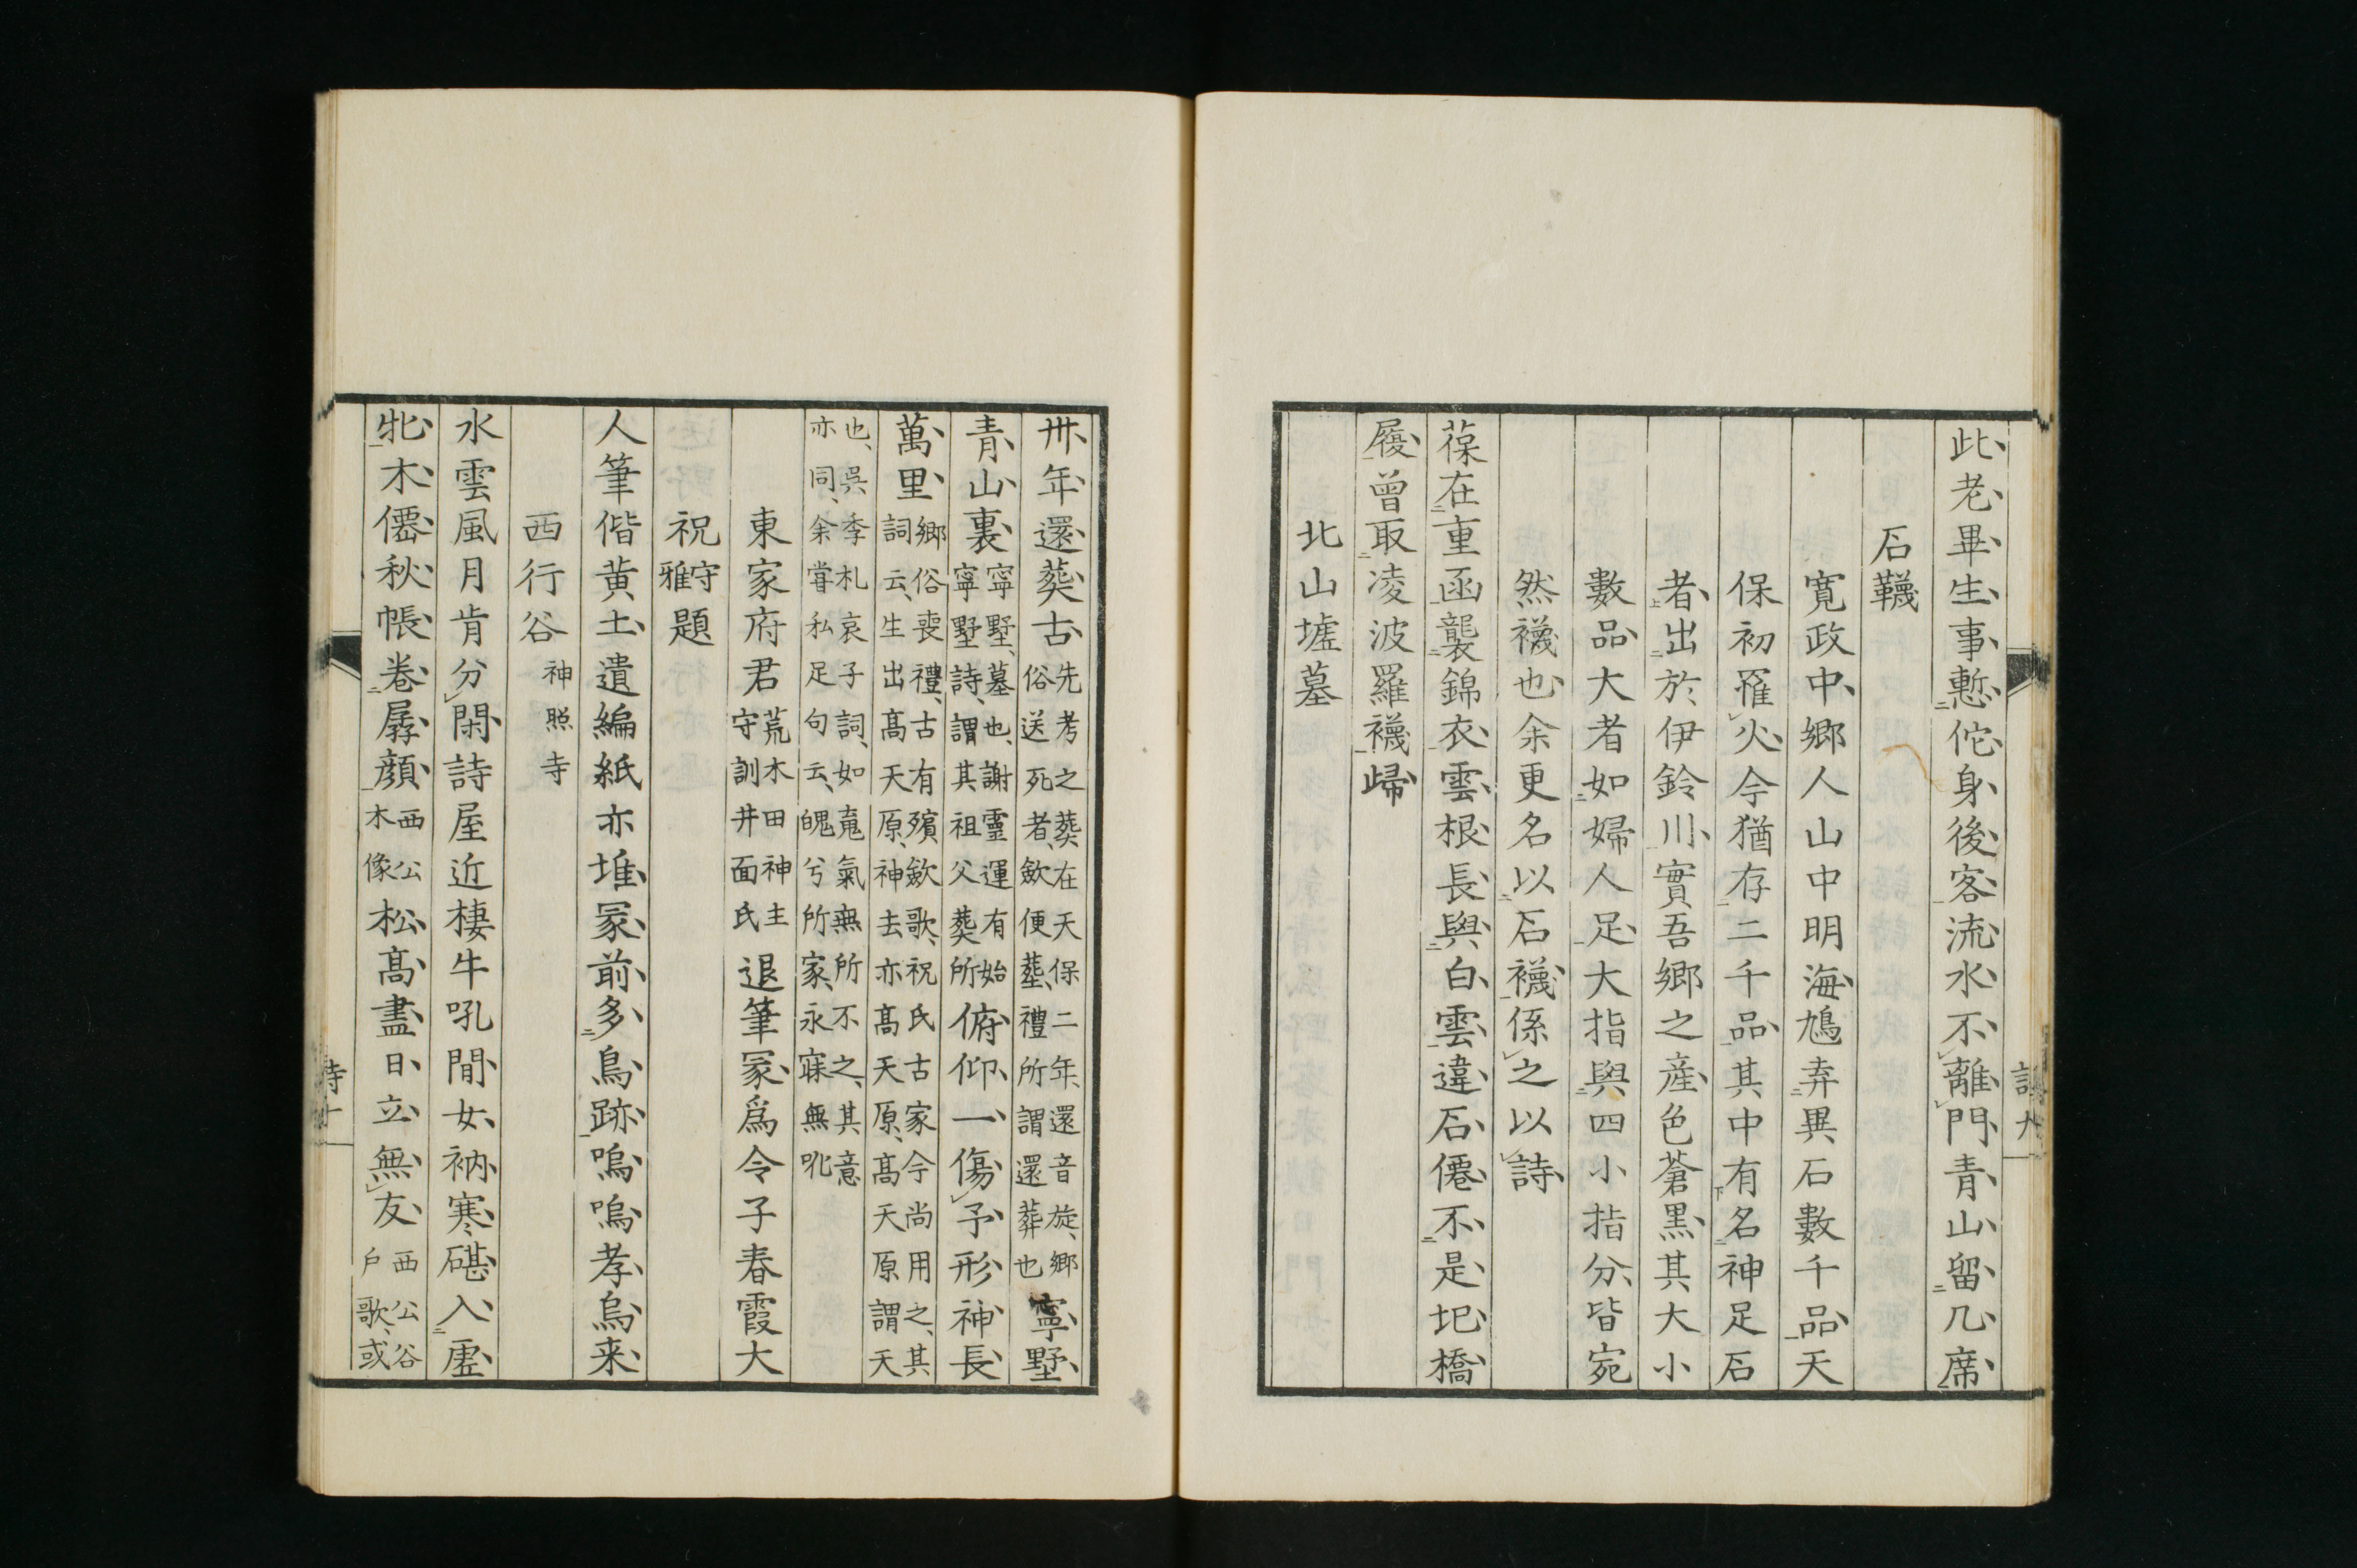 此老畢生事慙佗身後客流水不離門青山留几席
石韈
寛政中鄉人山中明海鳩弆異石數千品天
保初罹火今猶存二千品其中有名神足石
者出於伊鈴川實吾鄉之產色蒼黑其大小
數品大者如婦人足大指與四小指分皆宛
然襪也余更名以石襪係之以詩
葆在重函襲錦衣雲根長與白雲違石僊不是圯橋
履曾取凌波羅襪歸
北山墟墓
卅年還葬古先考之葬在天保二年還音旋鄉
俗送死者歛便葬禮所謂還葬也寧墅
青山裏寧墅墓也謝靈運有始
寧墅詩謂其祖父葬所俯仰一傷予形神長
萬里鄉俗喪禮古有殯歛歌祝氏古家今尚用之其
詞云生出高天原神去亦高天原高天原謂天
也吳季札哀子詞如䰟氣無所不之其意
亦同余甞私足句云魄兮所家永寐無吪
東家府君荒木田神主
守訓井面氏退筆冢為令子春霞大
祝守
雅題
人筆偕黃土遺編紙亦堆冢前多鳥跡嗚嗚孝烏来
西行谷神照寺
水雲風月肯分閑詩屋近棲牛吼間女衲寒碪入虛
牝木僊秋帳卷孱顏西公
木像松高盡日立無友西公谷
戶歌或